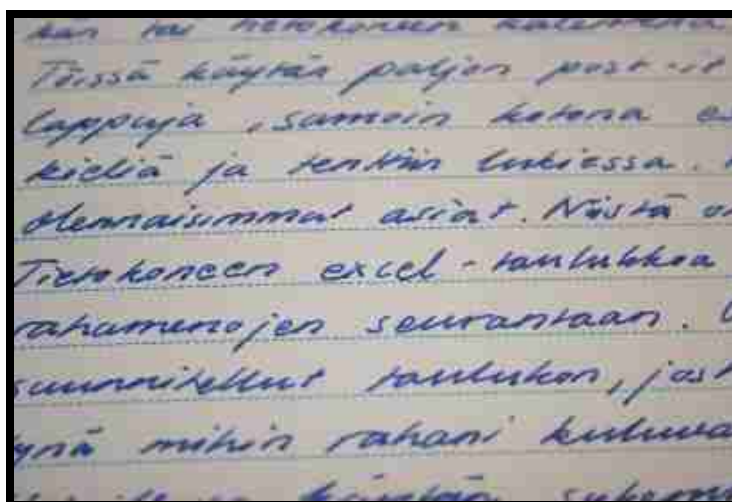 kän tai tietokoneen kalenteria
Töissä käytän paljon post-it
lappuja, samoin kotona es
kieliä ja tenttiin lukiessa.
olennaisimmat asiat. Niistä on
Tietokoneen excel-taulukkoa
rahamenojen seurantaan.
suunnitellut taulukon, jost
tynä mihin rahani kuluva
käytän